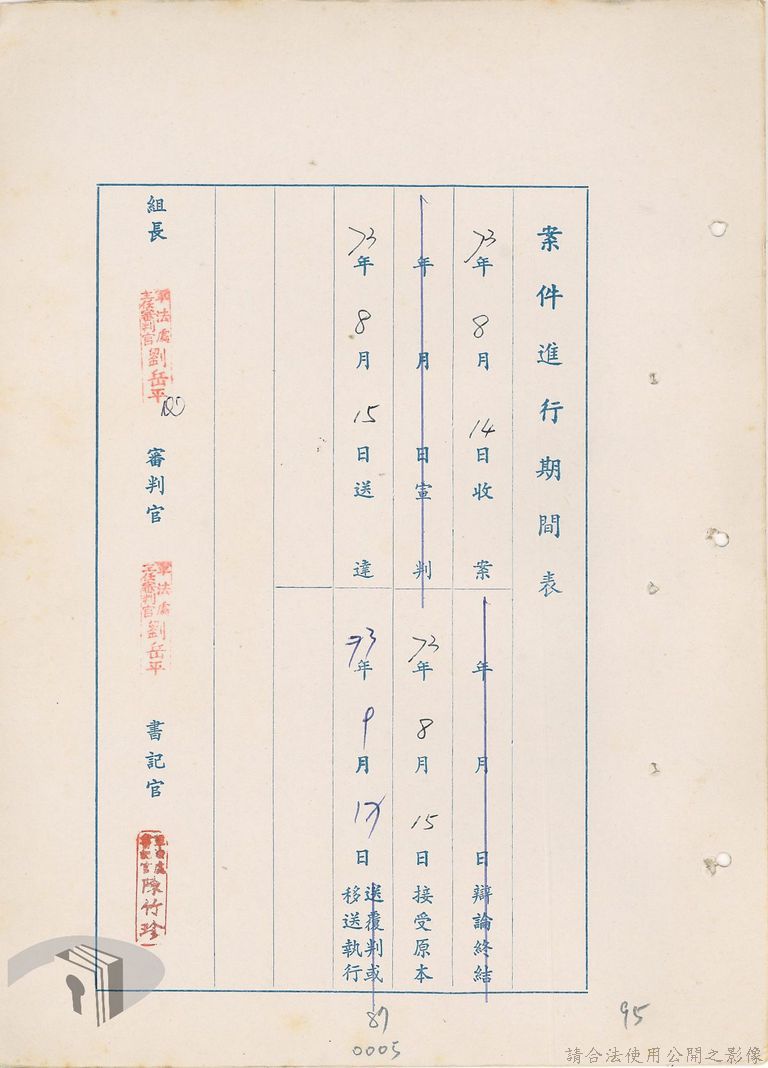 案件進行期間表
73年8月14日收案
年月日辯論終結
年月日宣判
73年8月15日接受原本
73年8月15日送達
73年9月17日送覆判或
移送執行
組長
軍法處
主任審判官 劉岳平
審判官
軍法處
主任審判官 劉岳平
書記官
軍法處
書記官 陳竹珍
87
0005
95
請合法使用公開之影像